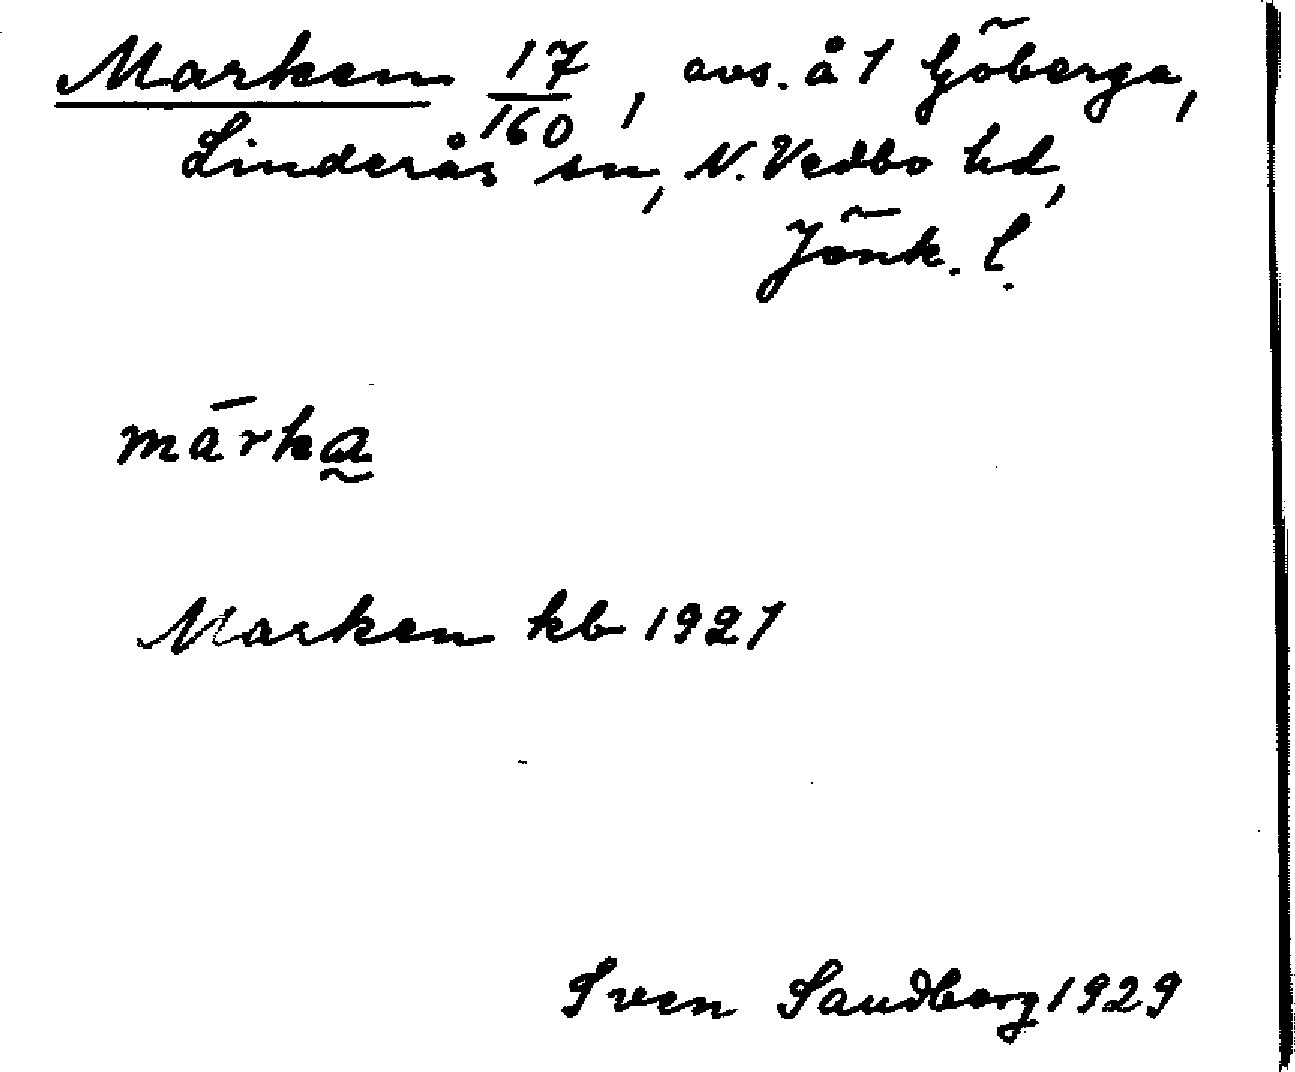 Marken 17/160, avs. å 1 Göberga,
Linderås sn, N. Vedbo hd,
Jönk. l.
mārka̰
Marken kb 1921
Sven Sandberg 1929